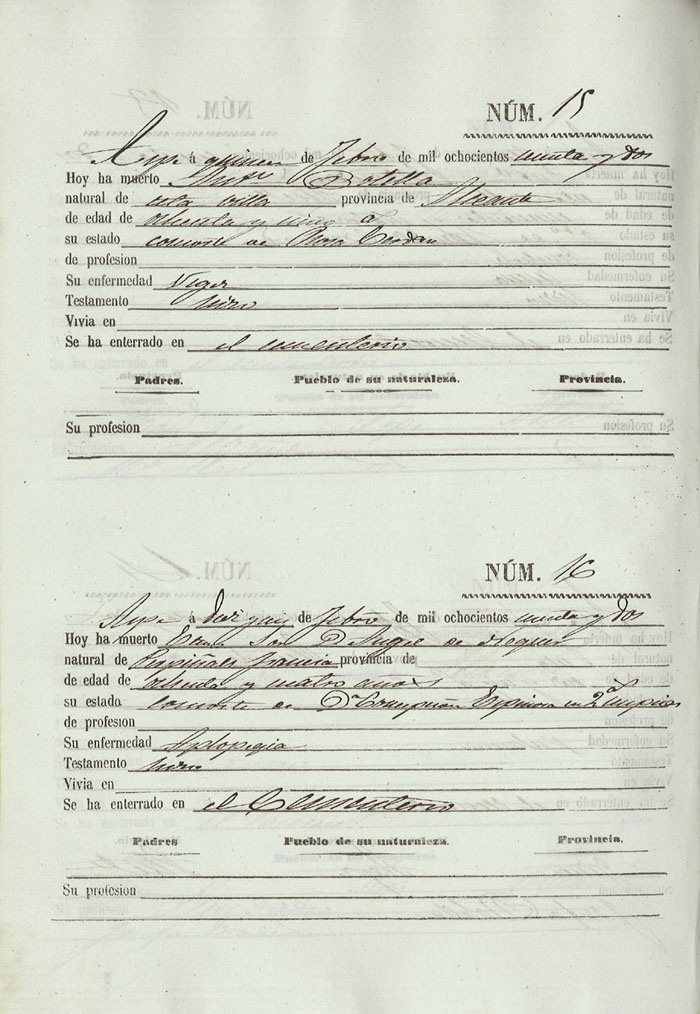 NÚM. 15
Aspe á quince de Febro de mil ochocientos noventa y dos
Hoy ha muerto Botella
natural de esta villa provincia de Alicante
de edad de ochenta y cinco a
su estado consorte de Rosa Cerdan
de profesion
Su enfermedad Vejez
Testamento hizo
Vivia en
Se ha enterrado en el cementerio
Padres. Pueblo de su naturaleza. Provincia.
Su profesion
NÚM. 16
Aspe á diez y seis de Febro de mil ochocientos noventa y dos
Hoy ha muerto D. de
natural de Francia provincia de
de edad de ochenta y cuatro años
su estado consorte de Da Concepción Espinosa en 2as nupcias
de profesion
Su enfermedad Aplopegia
Testamento hizo
Vivia en
Se ha enterrado en el Cementerio
Padres Pueblo de su naturaleza. Provincia.
Su profesion